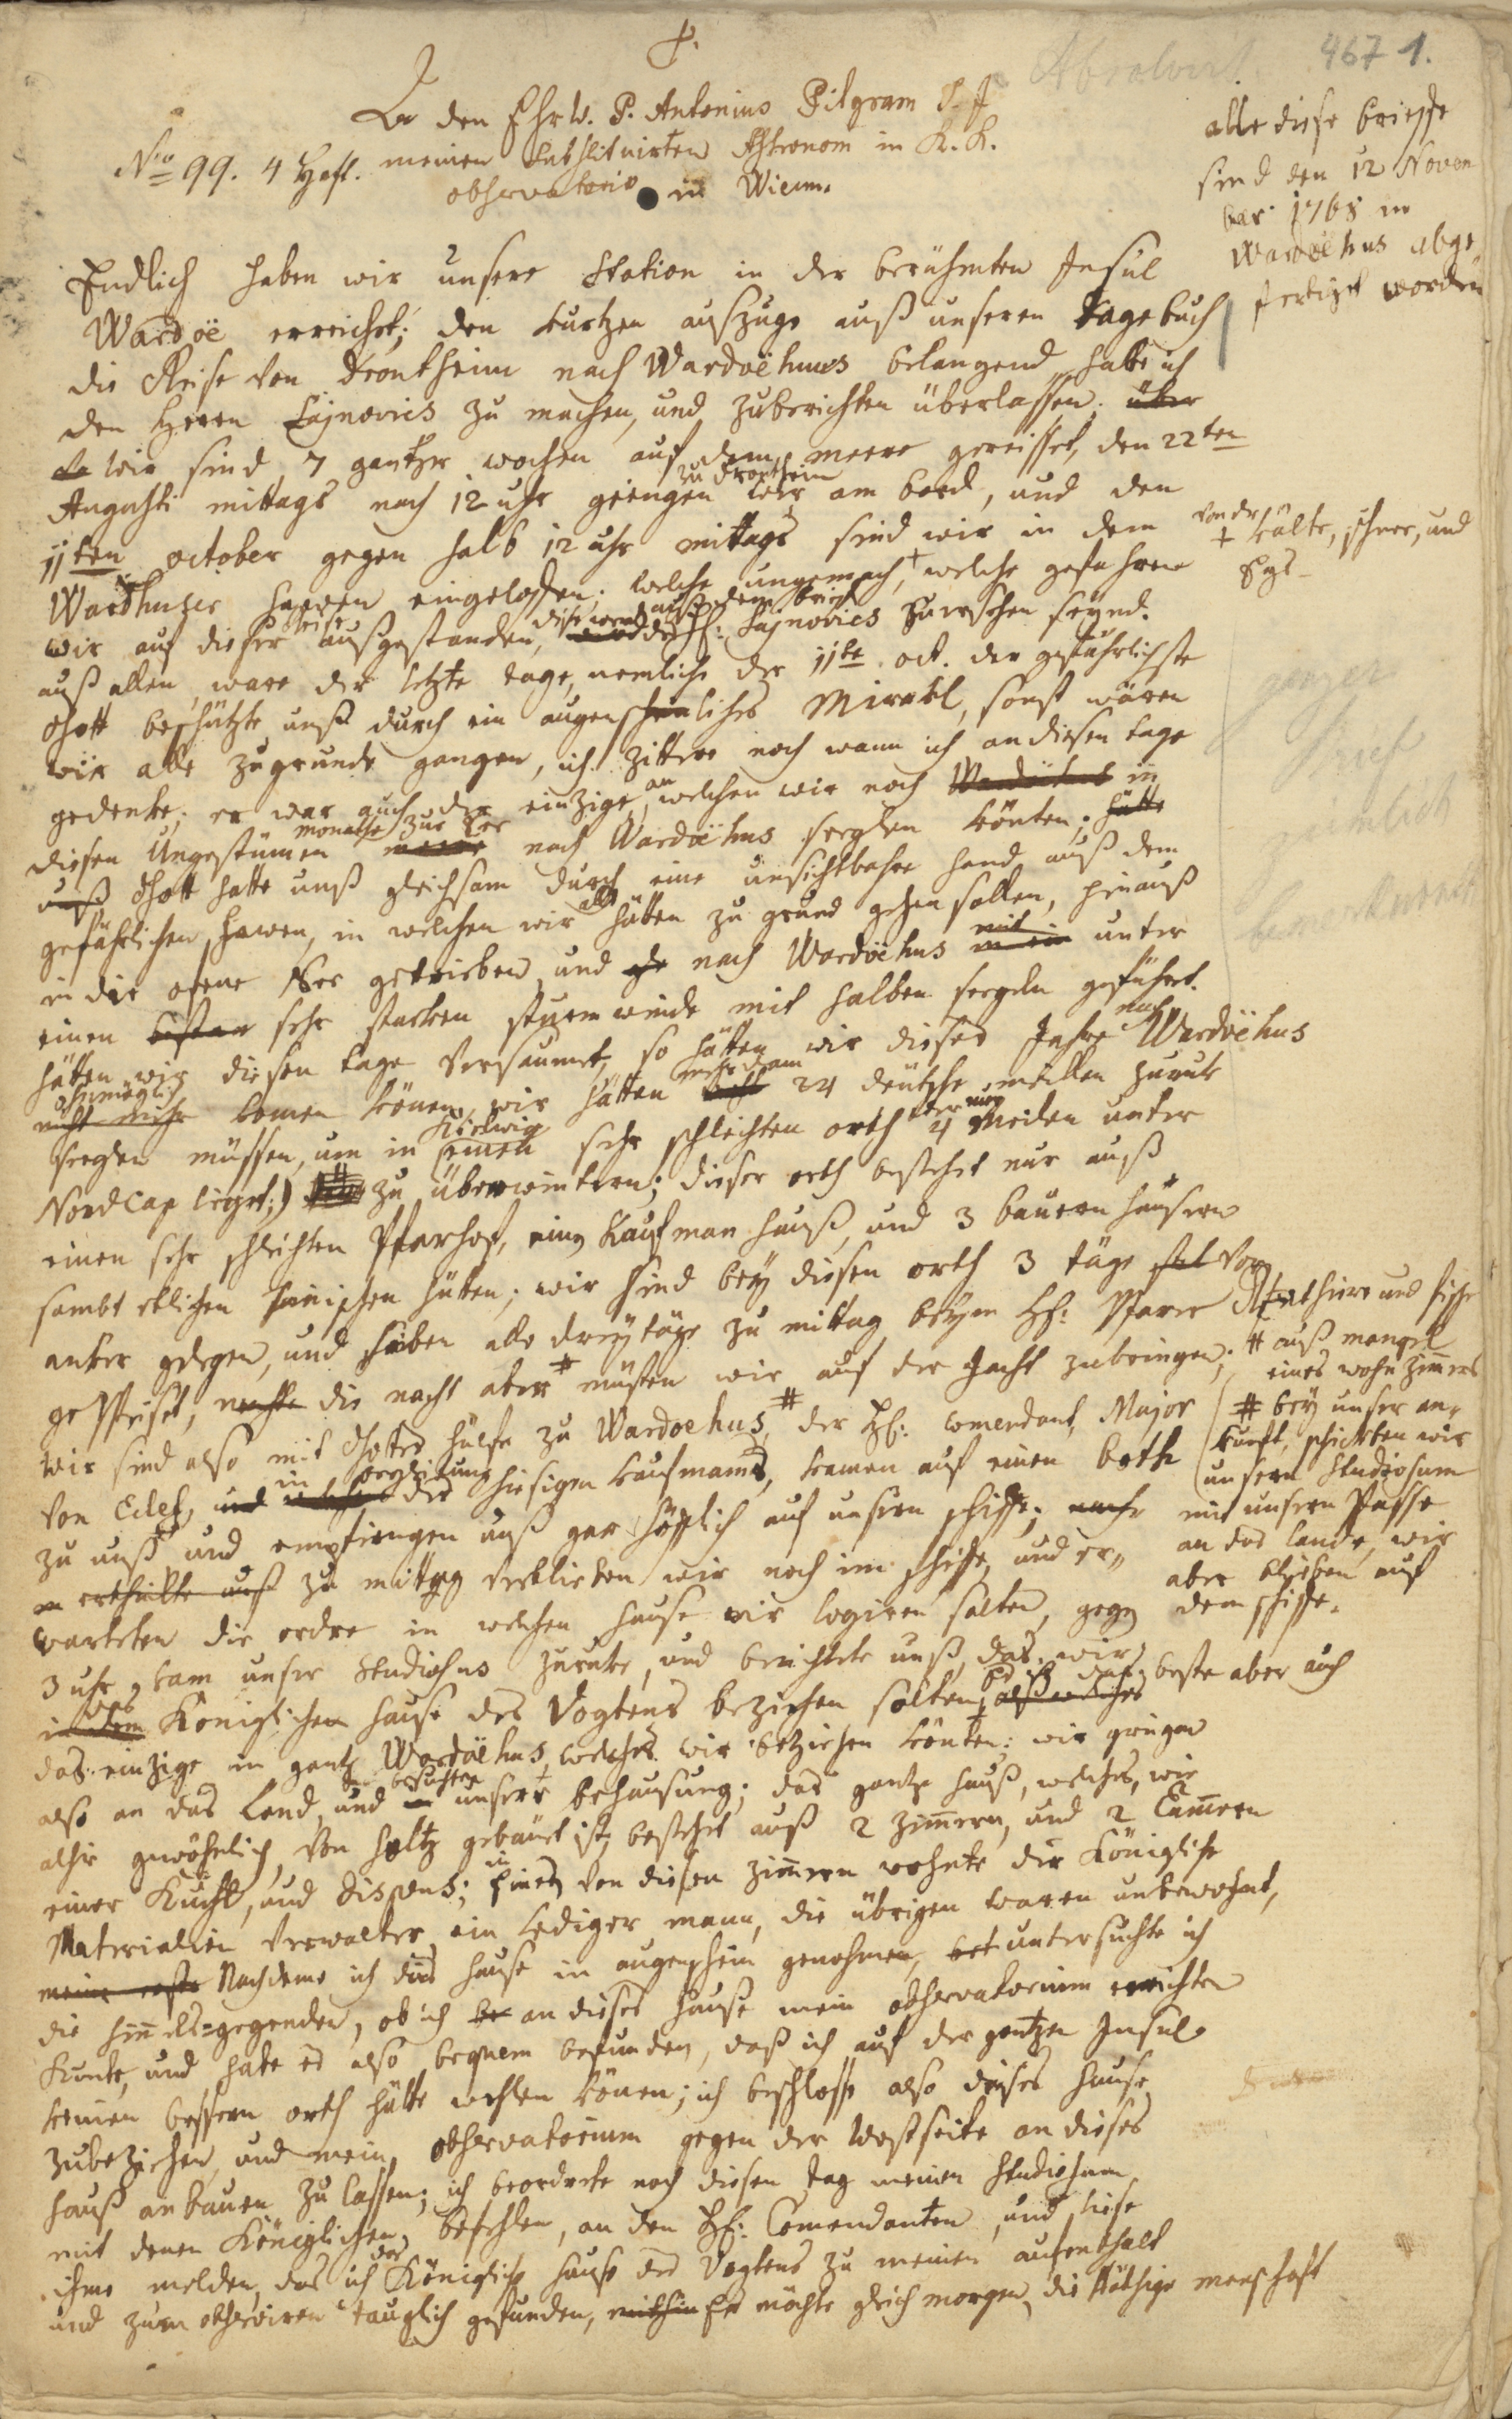 467 1.
An den Ehrw. P. Antonius Pilgram S. J
Nro 99. 4 Heft. meinen substituirten Astronom in K. K.
observatorio in Wienn.
alle diese brieffe
sind den 12 Novem
ber 1768 in
Wardoëhus abge
fertiget worden
Endlich haben wir unsere Station in der berühmten Insul
Wardoë erreichet; den kurtzen auszuge auß unseren tagebuch
die Reise von Drontheim nach Wardoëhuus belangend habe ich
den Herrn Sajnovics zu machen, und zuberichten überlassen. über
da wir sind 7 gantzer wochen auf dem meere gereisset, den 22ten
zu Drontheim
Augusti mittags nach 12 uhr giengen wir am bord, und den
11ten october gegen halb 12 uhr mittags sind wir in dem
von der
+ kälte, schnee, und
Eys
Wardhuser haven eingeloffen. welche ungemach, + welche gefahren
reise
diese werden auß dem brief
wir auf dieser außgestanden, des H: Sajnovics zuersehen seynd.
auß allen ware der letzte tage, nemliche der 11te oct. der gefährlichste
Gott beschützte unß durch ein augenscheinliches Mirakl, sonst wären
wir alle zugrunde gangen, ich zittere noch wann ich an diesen tage
an
gedenke; er war auch der einzige, welchen wir noch Wardoëhus in
monathe zur See
diesen Ungestümen meere nach Wardoëhus seglen könten; hätte
unß Gott hatte unß gleichsam durch eine unsichtbahre hand auß dem
alle
gefährlichen haven, in welchen wir hätten zu grund gehen sollen, hinauß
mit
in die ofene See getrieben und nach Wardoëhus in ein unter
einen sehr starken sturmwinde mit halben segeln geführt.
nach
hätten wir diesen tage versaumet, so hätten wir dieses Jahre Wardoëhus
ohnmöglich
mehr dann
nicht mehr komen können, wir hätten nicht 24 deutsche meillen zuruk
Kielwig
seglen müssen, um in einen sehr schlechten orth 4 Meilen unter
NordCap lieget;) zu überwintern; dieser orth bestehet nur auß
einen sehr schlechten Pfarhof, eine Kaufman hauß, und 3 bauern häusern
sambt etlichen finischen hüten; wir sind bey diesen orth 3 täge vor
anker gelegen, und haben alle drey täge zu mittag beym H: Pfarer Renthiere und fische
gespeiset, nachts die nacht aber # müsten wir auf der Jacht zubringen;
# auß mangel
eines wohn zimers
wir sind also mit Gottes hülfe zu Wardoehus, # der H: comendant, Major
# bey unser an-
kunft, schickten wir
unsern Studiosum
mit unsern Passe
an das lande, wir
aber blieben auf
dem schiffe.
in begleitung
von Eckel, und des hiesigen kaufmanns, kamen auf einen both
zu unß und empfiengen unß gar höflich auf unsern schiffe;
zu mittag verblieben wir noch im schiffe, und er-
warteten die ordre in welchen hause wir logiren solten, gegen
3 uhr kam unser Studiosus zuruke, und berichtete unß, das wir
das
es ist das beste aber auch
in dem Königlichen hause des Vogtens beziehen solten;
das einzige in gantz Wardoëhus, welches wir beziehen könten: wir giengen
besuchten
also an das Land, und unsere behausung; das gantze hauß, welches, wie
alhir gewöhnlich, von holtz gebäuet ist, bestehet auß 2 zimern, und 2 Camern
in
einer Kuchl, und dispens; einen von diesen zimern wohnte der Königliche
Materialien Verwalter ein lediger mann, die übrigen waren unbewohnt,
Nachdeme ich dies hause in augenschein genohmen, untersuchte ich
die himels-gegenden, ob ich an dieses hause mein observatorium errichten
kunte, und habe es also bequem befunden, daß ich auf der gantzen Insul
keinen bessern orth hätte wehlen können; ich beschlosse also dieses hause
zubeziehen, und mein observatorium gegen der Westseite an dieses
hauß anbauen zu lassen; ich beorderte noch diesen tag meinen Studiosum
mit denen Königlichen befehlen, an den H: Comendanten, und liese
das
ihme melden, das ich Königliche hause des Vogtens zu meinen aufenthalt
und zum observiren tauglich gefunden, mithin Er möchte gleich morgen die nöthige manschaft